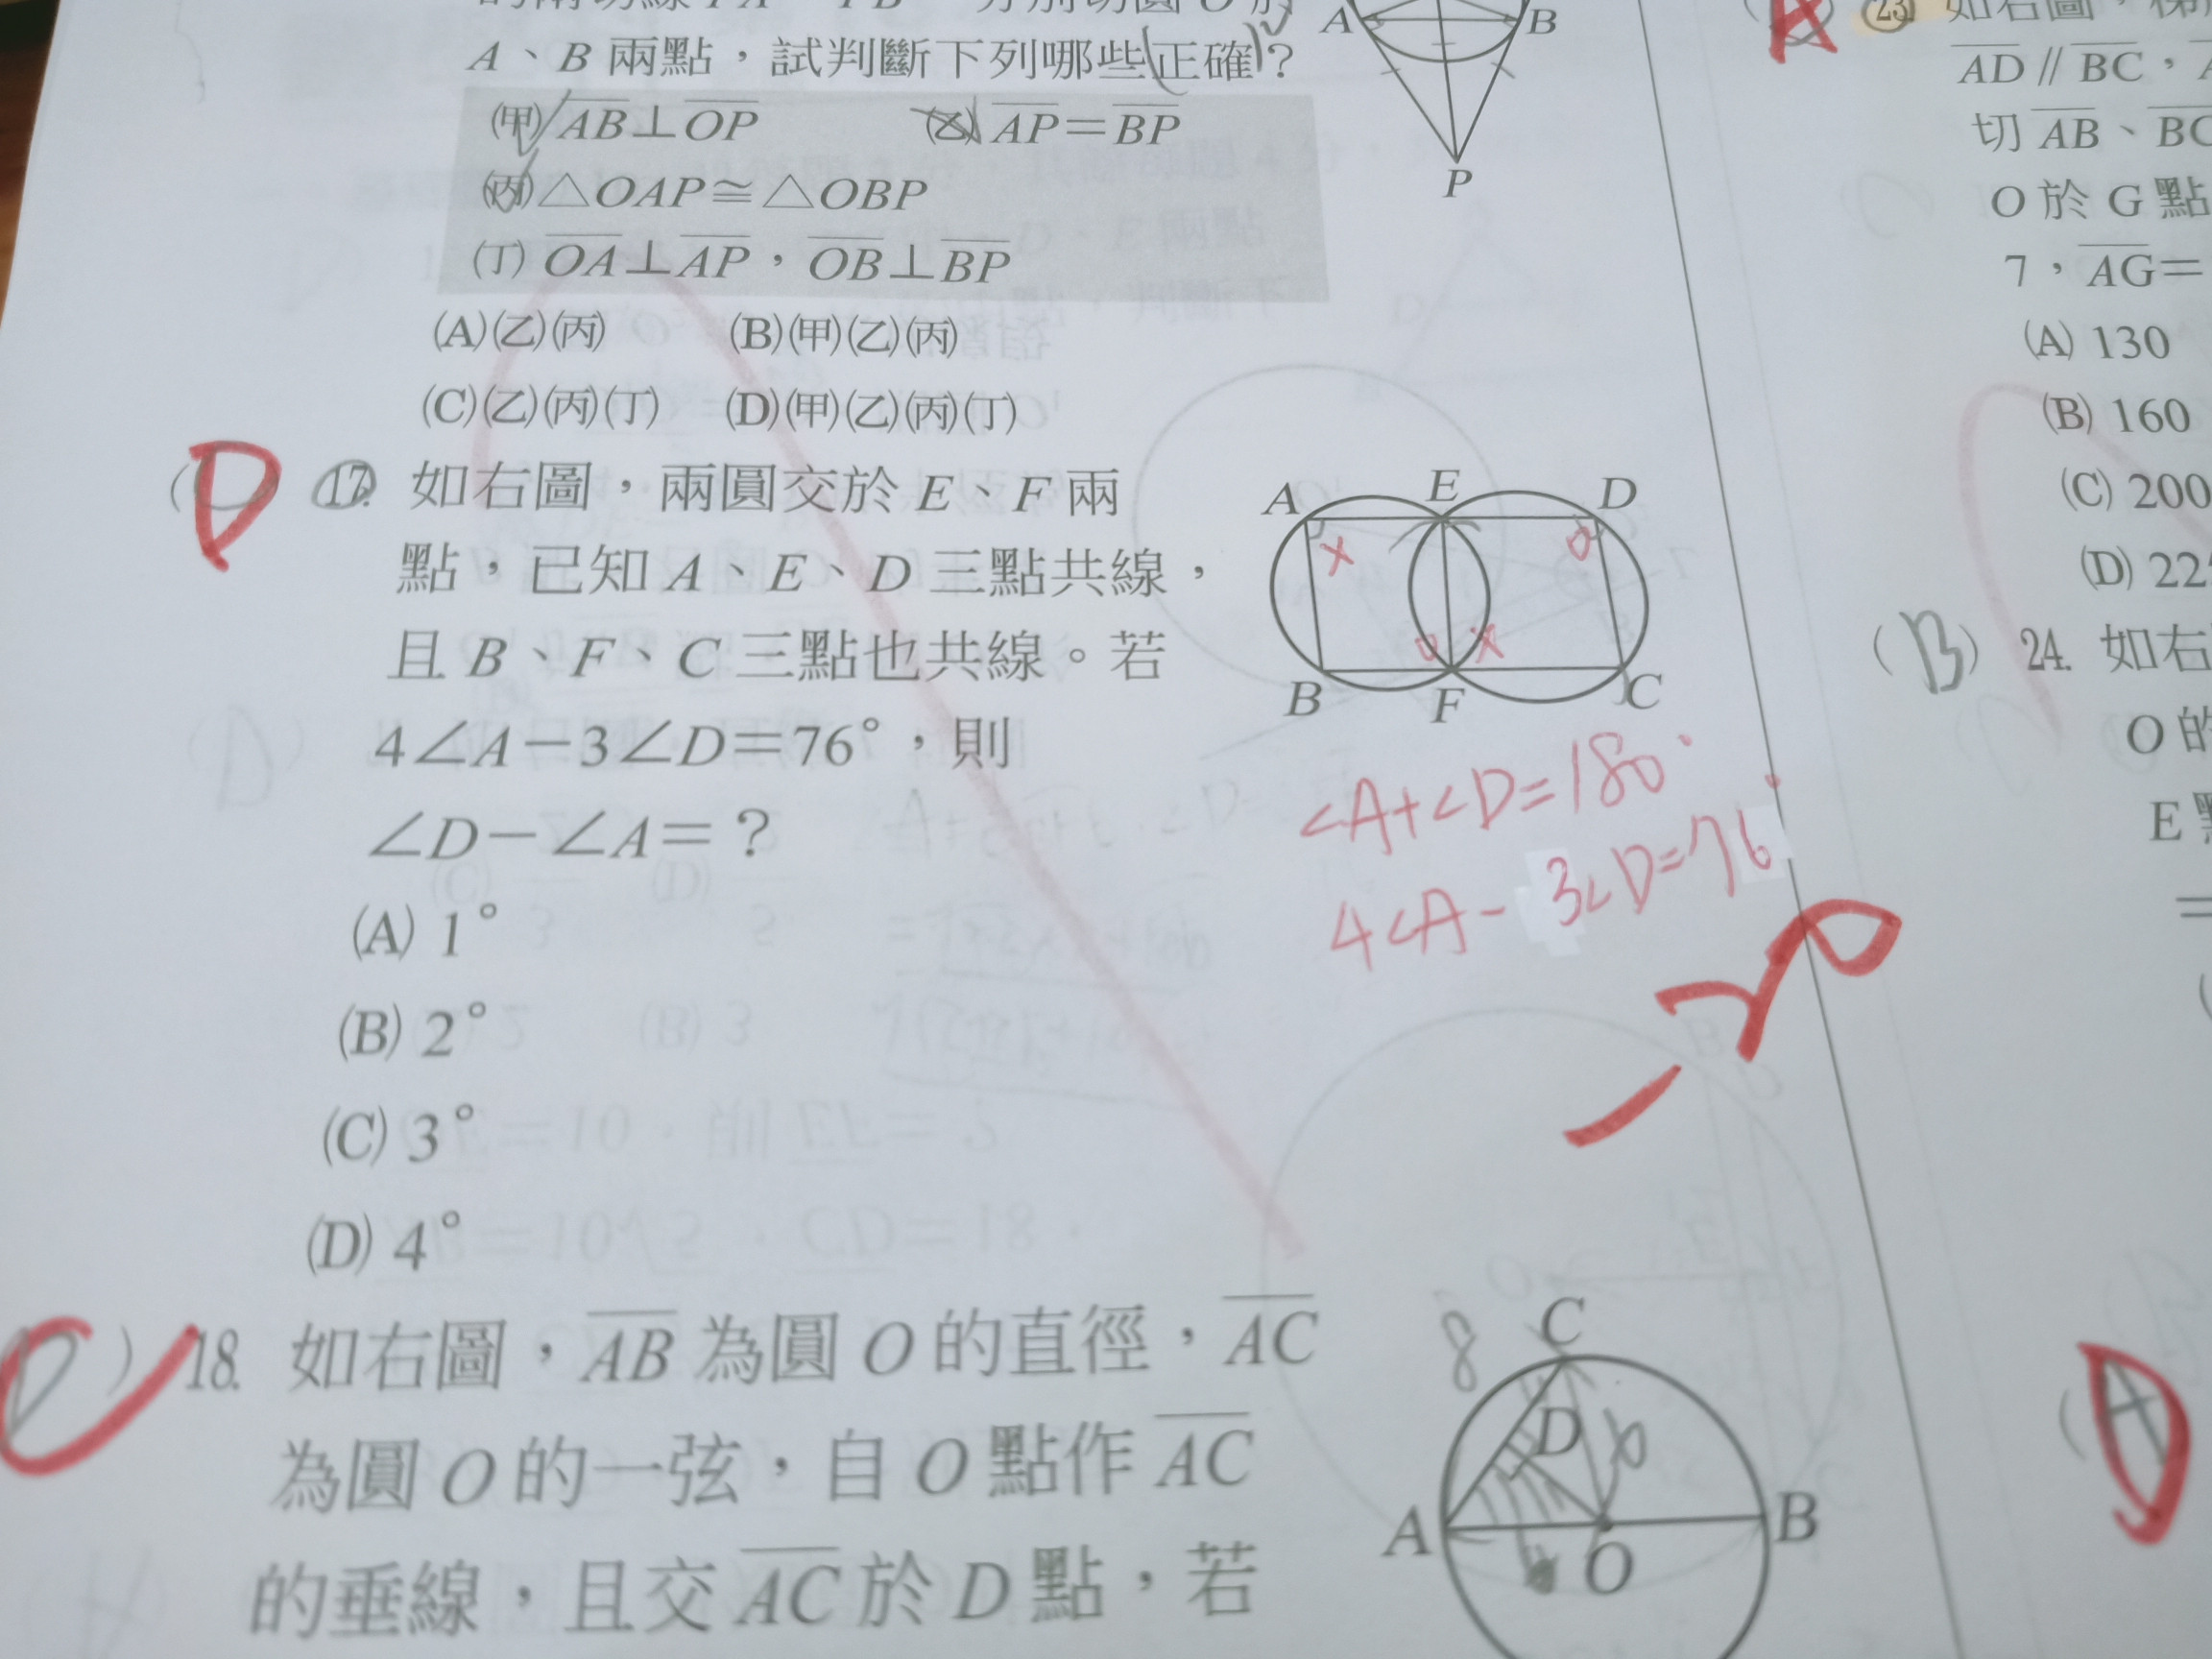 A、B 兩點,試判斷下列哪些正確?
(甲) AB⊥OP (乙) AP=BP
(丙)△OAP≅△OBP
(丁) OA⊥AP,OB⊥BP
(A)(乙)(丙) (B)(甲)(乙)(丙)
(C)(乙)(丙)(丁) (D)(甲)(乙)(丙)(丁)
A B
P
(D) 17. 如右圖,兩圓交於 E、F 兩
點,已知 A、E、D 三點共線,
且 B、F、C 三點也共線。若
4∠A-3∠D=76°,則
∠D-∠A=?
(A) 1°
(B) 2°
(C) 3°
(D) 4°
A E D
B F C
∠A+∠D=180°
4∠A-3∠D=76°
18. 如右圖,AB 為圓 O 的直徑,AC
為圓 O 的一弦,自 O 點作 AC
的垂線,且交 AC 於 D 點,若
8 C
D 6
A O B
A 23. 如右圖,梯
AD // BC,
切 AB、BC
O 於 G 點
7,AG=
(A) 130
(B) 160
(C) 200
(D) 22
(B) 24. 如右
O 的
E 點
=
D